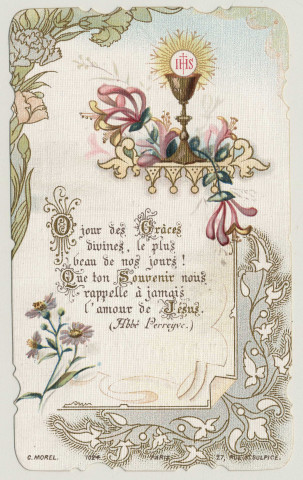 IHS
O jour des Grâces
divines, le plus
beau de nos jours !
Que ton Souvenir nous
rappelle à jamais
l'amour de Jésus.
(Abbé Perreyve.)
C. MOREL. 1024 PARIS 27, RUE St SULPICE.